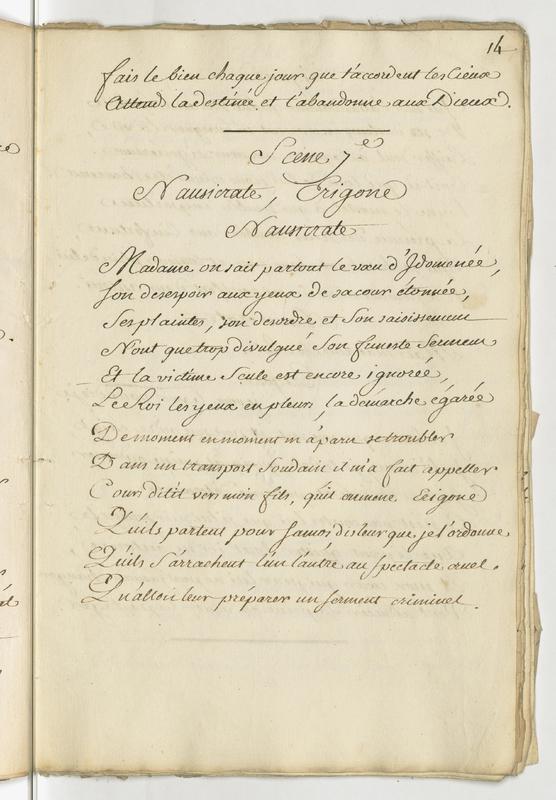 14
fais le bien chaque jour que t'accordent les Cieux
Attend la destinée et t'abandonne aux Dieux.
Scene 7e
Nausicrate, Erigone
Nausicrate
Madame on sait partout le vœu d'Idomenée,
son desespoir aux yeux de sa cour étonnée,
Ses plaintes, son desordre et son saisissement
N'ont que trop divulgué son funeste serment
Et la victime seule est encore ignorée,
Le Roi les yeux en pleurs, la démarche égarée
De moment en moment m'a paru se troubler
Dans un transport soudain il m'a fait appeller
Cours dit il vers mon fils, qu'il emmene Erigone
Qu'ils partent pour Samos dis leur que je l'ordonne
Qu'ils s'arrachent l'un l'autre au spectacle cruel.
Qu'alloit leur préparer un serment criminel.